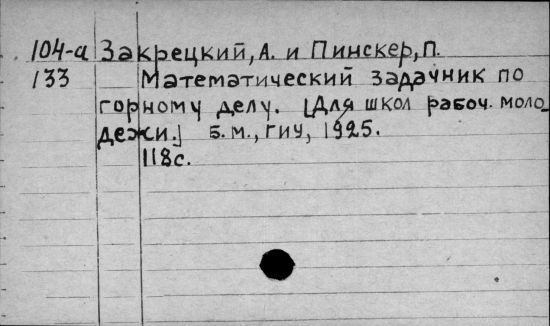 104-а Закрецкий, А. и Пинскер, П.
133 Математический задачник по
горному делу. [Для школ рабоч. моло_
дежи.] Б.м., ГИУ, 1925.
118с.